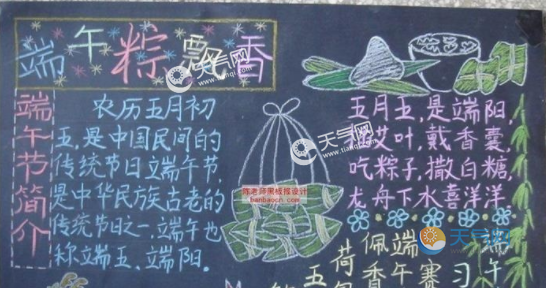 端午粽飘香
端午节简介
农历五月初
五,是中国民间的
传统节日端午节,
是中华民族古老的
传统节日之一,端午也
称端五、端阳。
五月五,是端阳,
艾叶,戴香囊,
吃粽子,撒白糖,
龙舟下水喜洋洋
陈老师黑板报设计
banbaocn.com
天气网
www.tianqi.com
天气网
天气网
荷 佩 端 赛 习 端
香 午 午
五